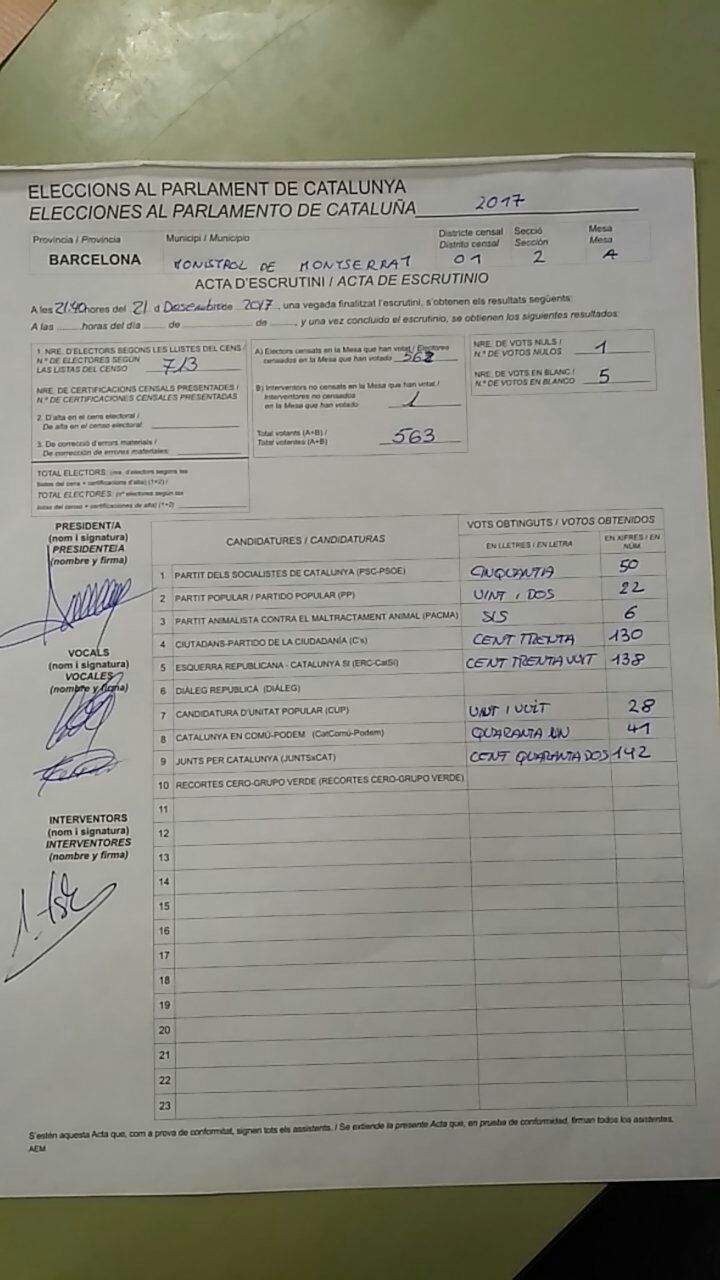 ELECCIONS AL PARLAMENT DE CATALUNYA
ELECCIONES AL PARLAMENTO DE CATALUÑA 2017
Provincia / Provincia Municipi / Municipio Districte censal Secció Mesa
Distrito censal Sección Mesa
BARCELONA MONISTROL DE MONTSERRAT 01 2 A
ACTA D'ESCRUTINI / ACTA DE ESCRUTINIO
A les 21:40 hores del 21 d Desembre de 2017, una vegada finalitzat l'escrutini, s'obtenen els resultats següents:
A las horas del día de de , y una vez concluido el escrutinio, se obtienen los siguientes resultados:
1. NRE. D'ELECTORS SEGONS LES LLISTES DEL CENS /
N.º DE ELECTORES SEGÚN
LAS LISTAS DEL CENSO 713
NRE. DE CERTIFICACIONS CENSALS PRESENTADES /
N.º DE CERTIFICACIONES CENSALES PRESENTADAS
2. D'alta en el cens electoral /
De alta en el censo electoral:
3. De correcció d'errors materials /
De corrección de errores materiales:
TOTAL ELECTORS: (nre. d'electors segons les
llistes del cens + certificacions d'alta) (1+2) /
TOTAL ELECTORES: (nº electores según las
listas del censo + certificaciones de alta) (1+2)
A) Electors censats en la Mesa que han votat / Electores
censados en la Mesa que han votado 562
B) Interventors no censats en la Mesa que han votat /
Interventores no censados
en la Mesa que han votado 1
Total votants (A+B) /
Total votantes (A+B) 563
NRE. DE VOTS NULS /
N.º DE VOTOS NULOS 1
NRE. DE VOTS EN BLANC /
N.º DE VOTOS EN BLANCO 5
PRESIDENT/A
(nom i signatura)
PRESIDENTE/A
(nombre y firma)
VOCALS
(nom i signatura)
VOCALES
(nombre y firma)
INTERVENTORS
(nom i signatura)
INTERVENTORES
(nombre y firma)
CANDIDATURES / CANDIDATURAS
VOTS OBTINGUTS / VOTOS OBTENIDOS
EN LLETRES / EN LETRA EN XIFRES / EN NÚM.
1 PARTIT DELS SOCIALISTES DE CATALUNYA (PSC-PSOE) CINQUANTA 50
2 PARTIT POPULAR / PARTIDO POPULAR (PP) VINT I DOS 22
3 PARTIT ANIMALISTA CONTRA EL MALTRACTAMENT ANIMAL (PACMA) SIS 6
4 CIUTADANS-PARTIDO DE LA CIUDADANÍA (C's) CENT TRENTA 130
5 ESQUERRA REPUBLICANA - CATALUNYA SÍ (ERC-CatSí) CENT TRENTA VUIT 138
6 DIÀLEG REPUBLICÀ (DIÀLEG)
7 CANDIDATURA D'UNITAT POPULAR (CUP) VINT I VUIT 28
8 CATALUNYA EN COMÚ-PODEM (CatComú-Podem) QUARANTA UN 41
9 JUNTS PER CATALUNYA (JUNTSxCAT) CENT QUARANTA DOS 142
10 RECORTES CERO-GRUPO VERDE (RECORTES CERO-GRUPO VERDE)
11
12
13
14
15
16
17
18
19
20
21
22
23
S'estén aquesta Acta que, com a prova de conformitat, signen tots els assistents. / Se extiende la presente Acta que, en prueba de conformidad, firman todos los asistentes.
AEM